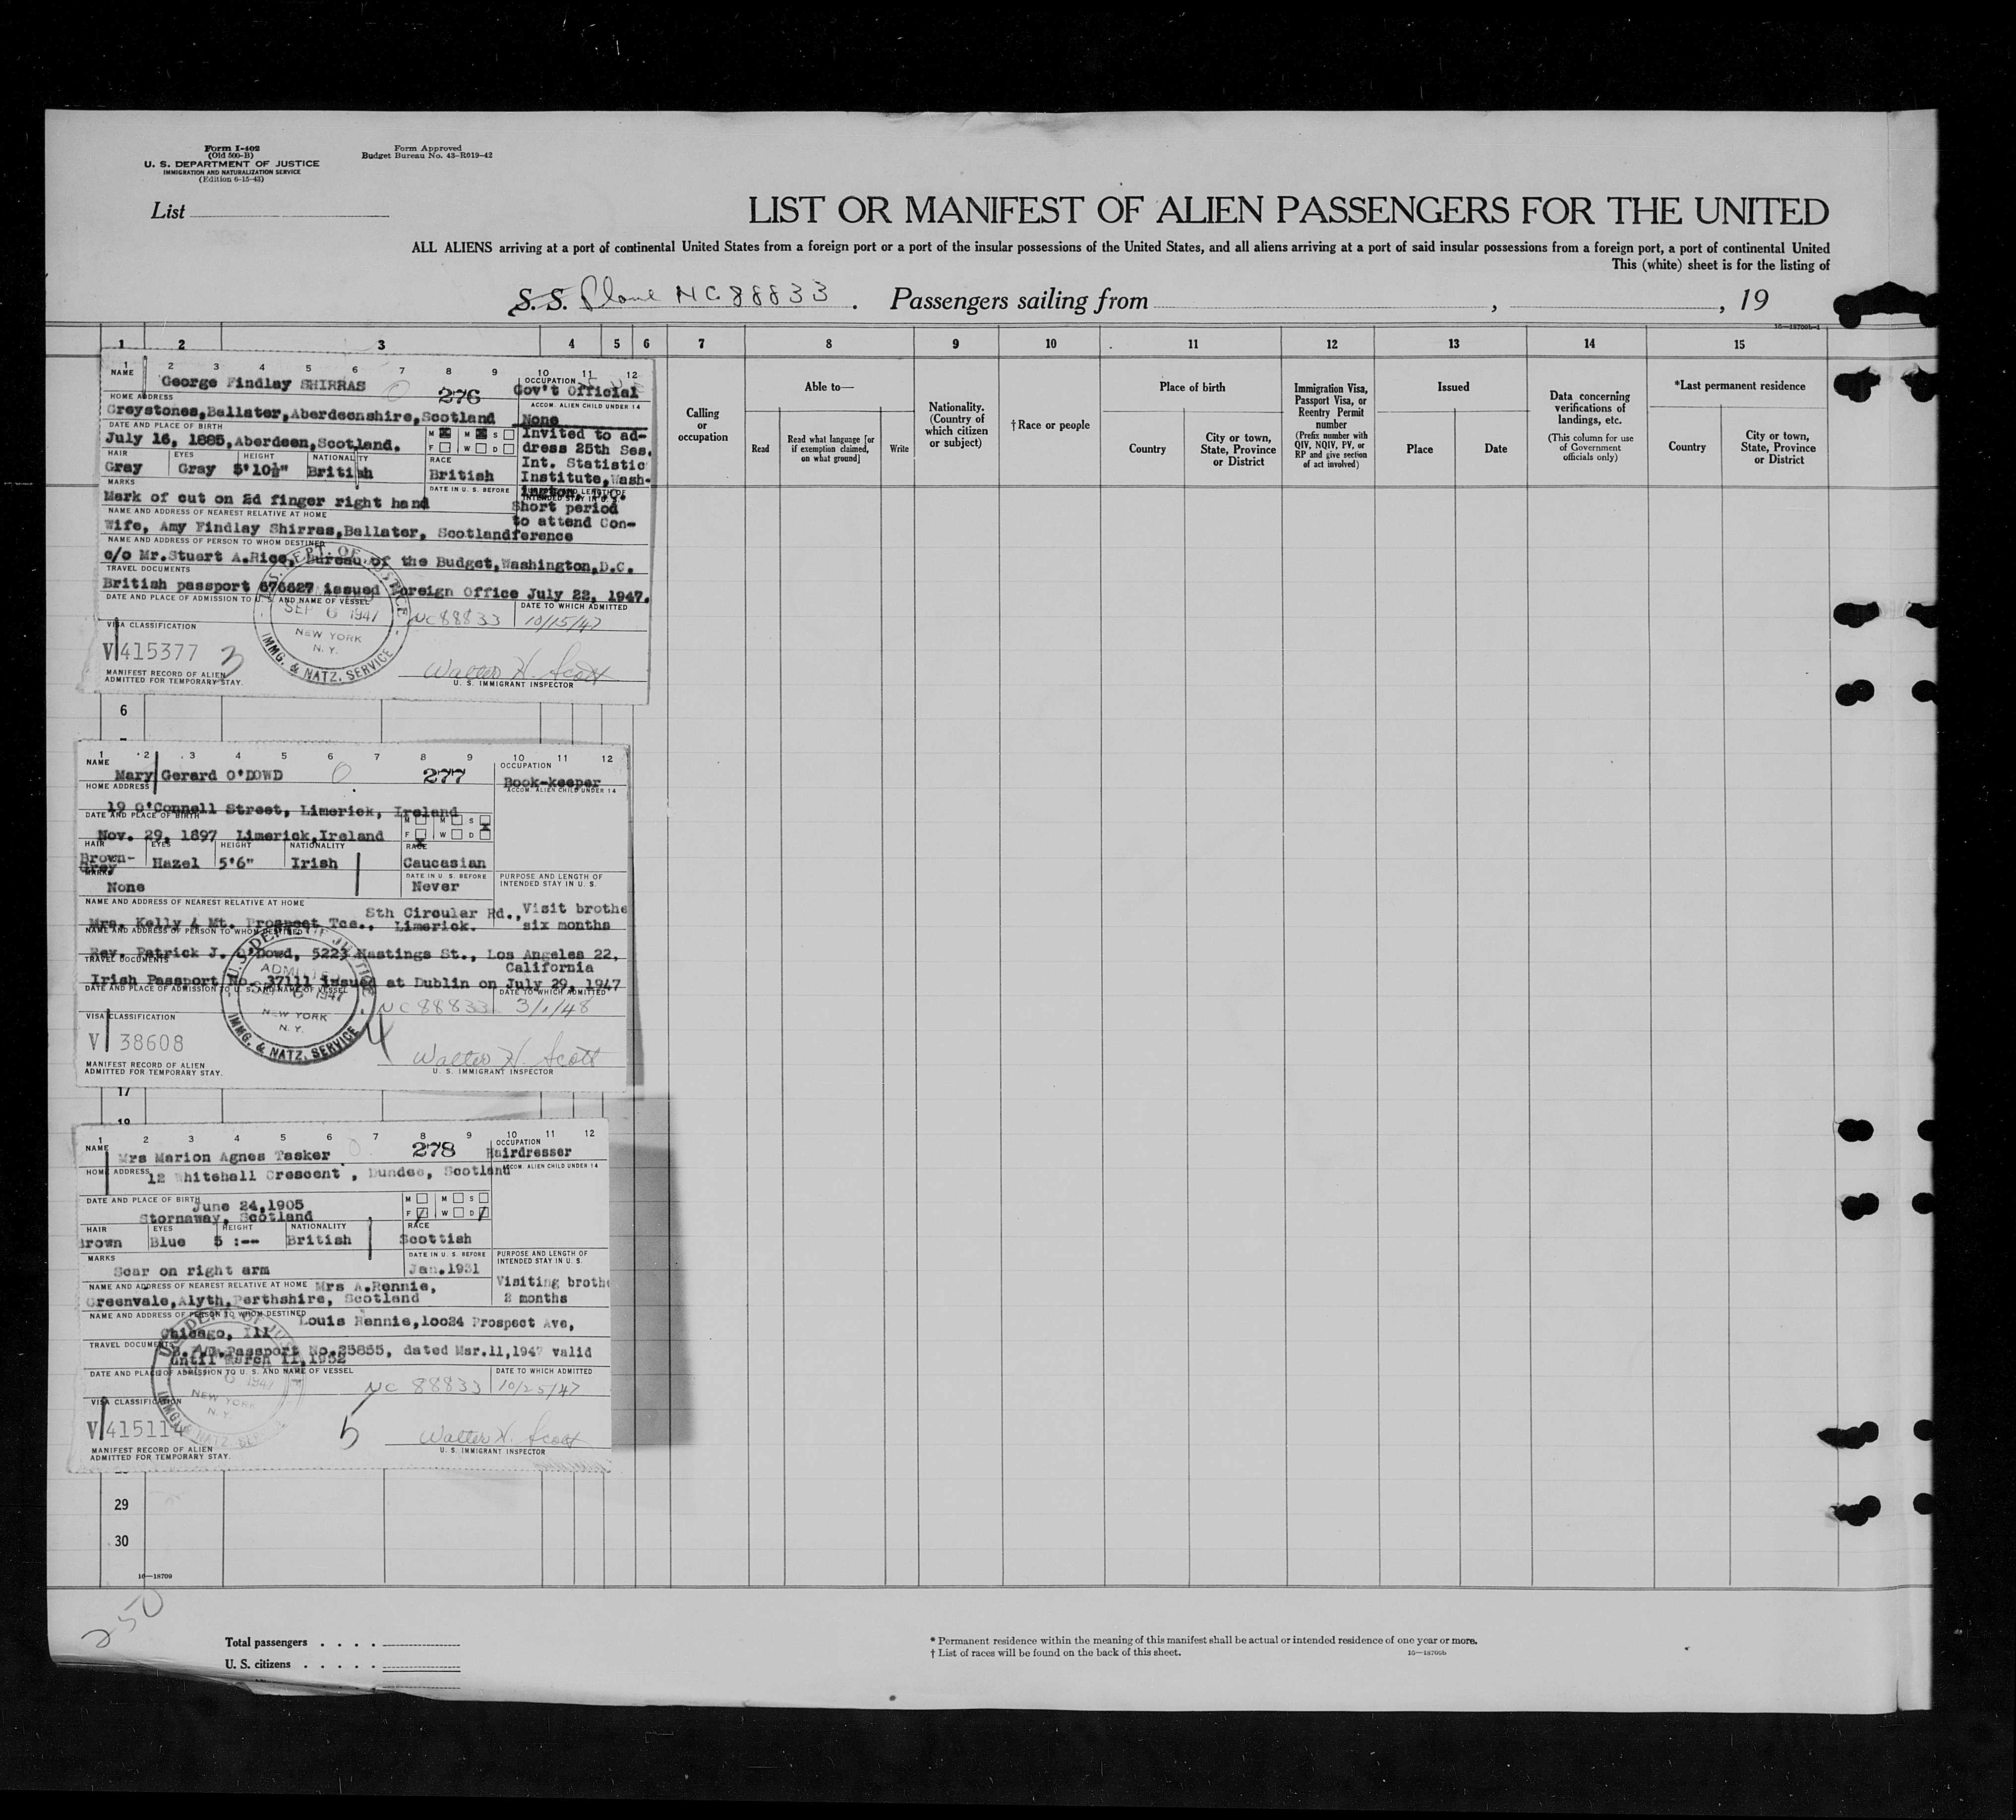 Form I-402
(Old 500-B)
U. S. DEPARTMENT OF JUSTICE
IMMIGRATION AND NATURALIZATION SERVICE
(Edition 6-15-43)
Form Approved
Budget Bureau No. 43-R019-42
List
LIST OR MANIFEST OF ALIEN PASSENGERS FOR THE UNITED
ALL ALIENS arriving at a port of continental United States from a foreign port or a port of the insular possessions of the United States, and all aliens arriving at a port of said insular possessions from a foreign port, a port of continental United
This (white) sheet is for the listing of
S. S. Plane NC88833. Passengers sailing from , , 19
1 2 3 4 5 6 7 8 9 10 11 12 13 14 15
Calling or occupation
Able to—
Read
Read what language [or if exemption claimed, on what ground]
Write
Nationality. (Country of which citizen or subject)
†Race or people
Place of birth
Country
City or town, State, Province or District
Immigration Visa, Passport Visa, or Reentry Permit number
(Prefix number with QIV, NQIV, PV, or RP and give section of act involved)
Issued
Place
Date
Data concerning verifications of landings, etc.
(This column for use of Government officials only)
*Last permanent residence
Country
City or town, State, Province or District
1 2 3 4 5 6 7 8 9 10 11 12
NAME George Findlay SHIRRAS 276
OCCUPATION Gov't Official
HOME ADDRESS
Greystones,Ballater,Aberdeenshire,Scotland
ACCOM. ALIEN CHILD UNDER 14
None
DATE AND PLACE OF BIRTH
July 16, 1885,Aberdeen,Scotland.
M M S
F W D
Invited to ad-
dress 25th Ses.
Int. Statistic
Institute,Wash-
HAIR EYES HEIGHT NATIONALITY RACE
Gray Gray 5'10½" British British
MARKS
Mark of cut on 2d finger right hand
DATE IN U. S. BEFORE
Short period
to attend Con-
ference
NAME AND ADDRESS OF NEAREST RELATIVE AT HOME
Wife, Amy Findlay Shirras,Ballater, Scotland
NAME AND ADDRESS OF PERSON TO WHOM DESTINED
c/o Mr.Stuart A.Rice, Bureau of the Budget,Washington,D.C.
TRAVEL DOCUMENTS
British passport 676627 issued Foreign Office July 22, 1947.
DATE AND PLACE OF ADMISSION TO U. S. AND NAME OF VESSEL
DATE TO WHICH ADMITTED
SEP 6 1947
NEW YORK
N. Y.
IMMG. & NATZ. SERVICE
NC88833 10/15/47
VISA CLASSIFICATION
V 415377 3
Walter H. Scott
U. S. IMMIGRANT INSPECTOR
MANIFEST RECORD OF ALIEN
ADMITTED FOR TEMPORARY STAY.
6
1 2 3 4 5 6 7 8 9 10 11 12
NAME Mary Gerard O'DOWD 277
OCCUPATION
Book-keeper
HOME ADDRESS
19 O'Connell Street, Limerick, Ireland
ACCOM. ALIEN CHILD UNDER 14
DATE AND PLACE OF BIRTH
Nov. 29, 1897 Limerick,Ireland
M M S
F W D
HAIR EYES HEIGHT NATIONALITY RACE
Brown-
Grey Hazel 5'6" Irish Caucasian
MARKS
None
DATE IN U. S. BEFORE
Never
PURPOSE AND LENGTH OF INTENDED STAY IN U. S.
Visit brothe
six months
NAME AND ADDRESS OF NEAREST RELATIVE AT HOME
Mrs. Kelly 4 Mt. Prospect Tce., Sth Circular Rd., Limerick.
NAME AND ADDRESS OF PERSON TO WHOM DESTINED
Rev. Patrick J. O'Dowd, 5223 Hastings St., Los Angeles 22,
California
TRAVEL DOCUMENTS
Irish Passport No. 37111 issued at Dublin on July 29, 1947
DATE AND PLACE OF ADMISSION TO U. S. AND NAME OF VESSEL
DATE TO WHICH ADMITTED
U. S. DEPT. OF JUSTICE
ADMITTED
SEP 6 1947
NEW YORK
N. Y.
IMMG. & NATZ. SERVICE
NC 88833 3/1/48
VISA CLASSIFICATION
V 38608 4
Walter H. Scott
U. S. IMMIGRANT INSPECTOR
MANIFEST RECORD OF ALIEN
ADMITTED FOR TEMPORARY STAY.
17
1 2 3 4 5 6 7 8 9 10 11 12
NAME Mrs Marion Agnes Tasker 278
OCCUPATION
Hairdresser
HOME ADDRESS
12 Whitehall Crescent , Dundee, Scotland
ACCOM. ALIEN CHILD UNDER 14
DATE AND PLACE OF BIRTH
June 24,1905
Stornaway, Scotland
M M S
F W D
HAIR EYES HEIGHT NATIONALITY RACE
Brown Blue 5 :-- British Scottish
MARKS
Scar on right arm
DATE IN U. S. BEFORE
Jan.1931
PURPOSE AND LENGTH OF INTENDED STAY IN U. S.
Visiting brothe
2 months
NAME AND ADDRESS OF NEAREST RELATIVE AT HOME Mrs A.Rennie,
Greenvale,Alyth,Perthshire, Scotland
NAME AND ADDRESS OF PERSON TO WHOM DESTINED
Louis Rennie,10024 Prospect Ave,
Chicago, Ill
TRAVEL DOCUMENTS
Passport No.25855, dated Mar.11,1947 valid
until March 11,1952
DATE AND PLACE OF ADMISSION TO U. S. AND NAME OF VESSEL
DATE TO WHICH ADMITTED
6 1947
NEW YORK
N. Y.
NC 88833 10/25/47
VISA CLASSIFICATION
V 415114 5
Walter H. Scott
U. S. IMMIGRANT INSPECTOR
MANIFEST RECORD OF ALIEN
ADMITTED FOR TEMPORARY STAY.
29
30
16—18709
250
Total passengers . . . .
U. S. citizens . . . . .
* Permanent residence within the meaning of this manifest shall be actual or intended residence of one year or more.
† List of races will be found on the back of this sheet.